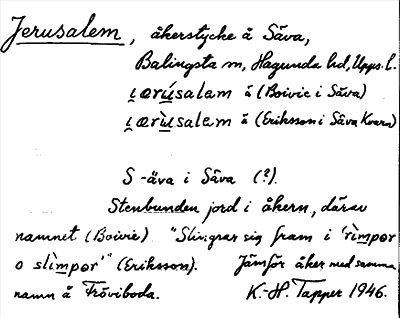 Jerusalem, åkerstycke å Säva,
Balingsta sn, Hagunda hd, Upps. l.
ɩærúsalam å (Boivie i Säva)
ɩærùsalam å (Eriksson i Säva Kvarn)
S -äva i Säva (?).
Stenbunden jord i åkern, därav
namnet (Boivie) "Slingrar sig fram i 'rìmpor
o slìmpor'" (Eriksson). Jämför åker med samma
namn å Fröviboda. K.-H. Tapper 1946.